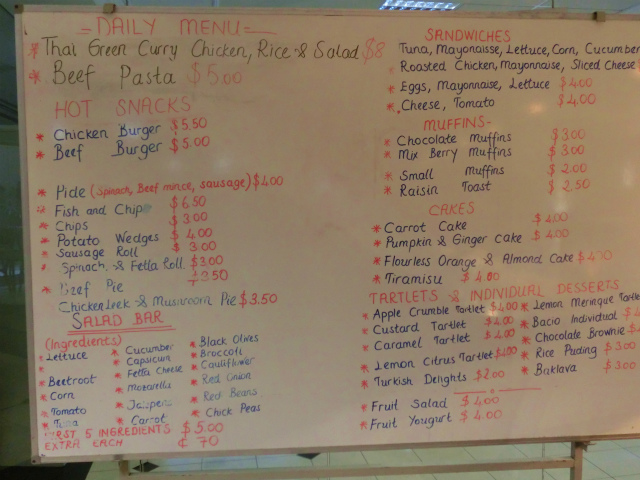 =DAILY MENU=
* Thai Green Curry Chicken, Rice & Salad $8
* Beef Pasta $5.00
HOT SNACKS
* Chicken Burger $5.50
* Beef Burger $5.00
* Pide (Spinach, Beef mince, sausage) $4.00
* Fish and Chip $6.50
* Chips $3.00
* Potato Wedges $4.00
* Sausage Roll $3.00
* Spinach & Fetta Roll $3.00
* Beef Pie $3.50
Chicken Leek & Mushroom Pie $3.50
SALAD BAR
(Ingredients)
* Lettuce
* Beetroot
* Corn
* Tomato
* Tuna
* Cucumber
* Capsicum
* Fetta Cheese
* Mozarella
* Carrot
* Black Olives
* Broccoli
* Cauliflower
* Red Onion
* Red Beans
* Chick Peas
FIRST 5 INGREDIENTS $5.00
EXTRA EACH ¢ 70
SANDWICHES
Tuna, Mayonaisse, Lettuce, Corn, Cucumber
* Roasted Chicken, Mayonnaise, Sliced Cheese
* Eggs, Mayonnaise, Lettuce $4.00
* Cheese, Tomato $4.00
MUFFINS-
* Chocolate Muffins $3.00
* Mix Berry Muffins $3.00
* Small Muffins $2.00
* Raisin Toast $2.50
CAKES
* Carrot Cake $4.00
* Pumpkin & Ginger Cake $4.00
* Flourless Orange & Almond Cake
* Tiramisu $4.00
TARTLETS & INDIVIDUAL DESSERTS
* Apple Crumble Tartlet $4.00
* Custard Tartlet $4.00
* Caramel Tartlet $4.00
* Lemon Citrus Tartlet $4.00
* Turkish Delights $2.00
* Lemon Meringue Tartlet
* Bacio Individual
* Chocolate Brownie
* Rice Puding $3.00
* Baklava $3.00
* Fruit Salad $4.00
* Fruit Yougurt $4.00